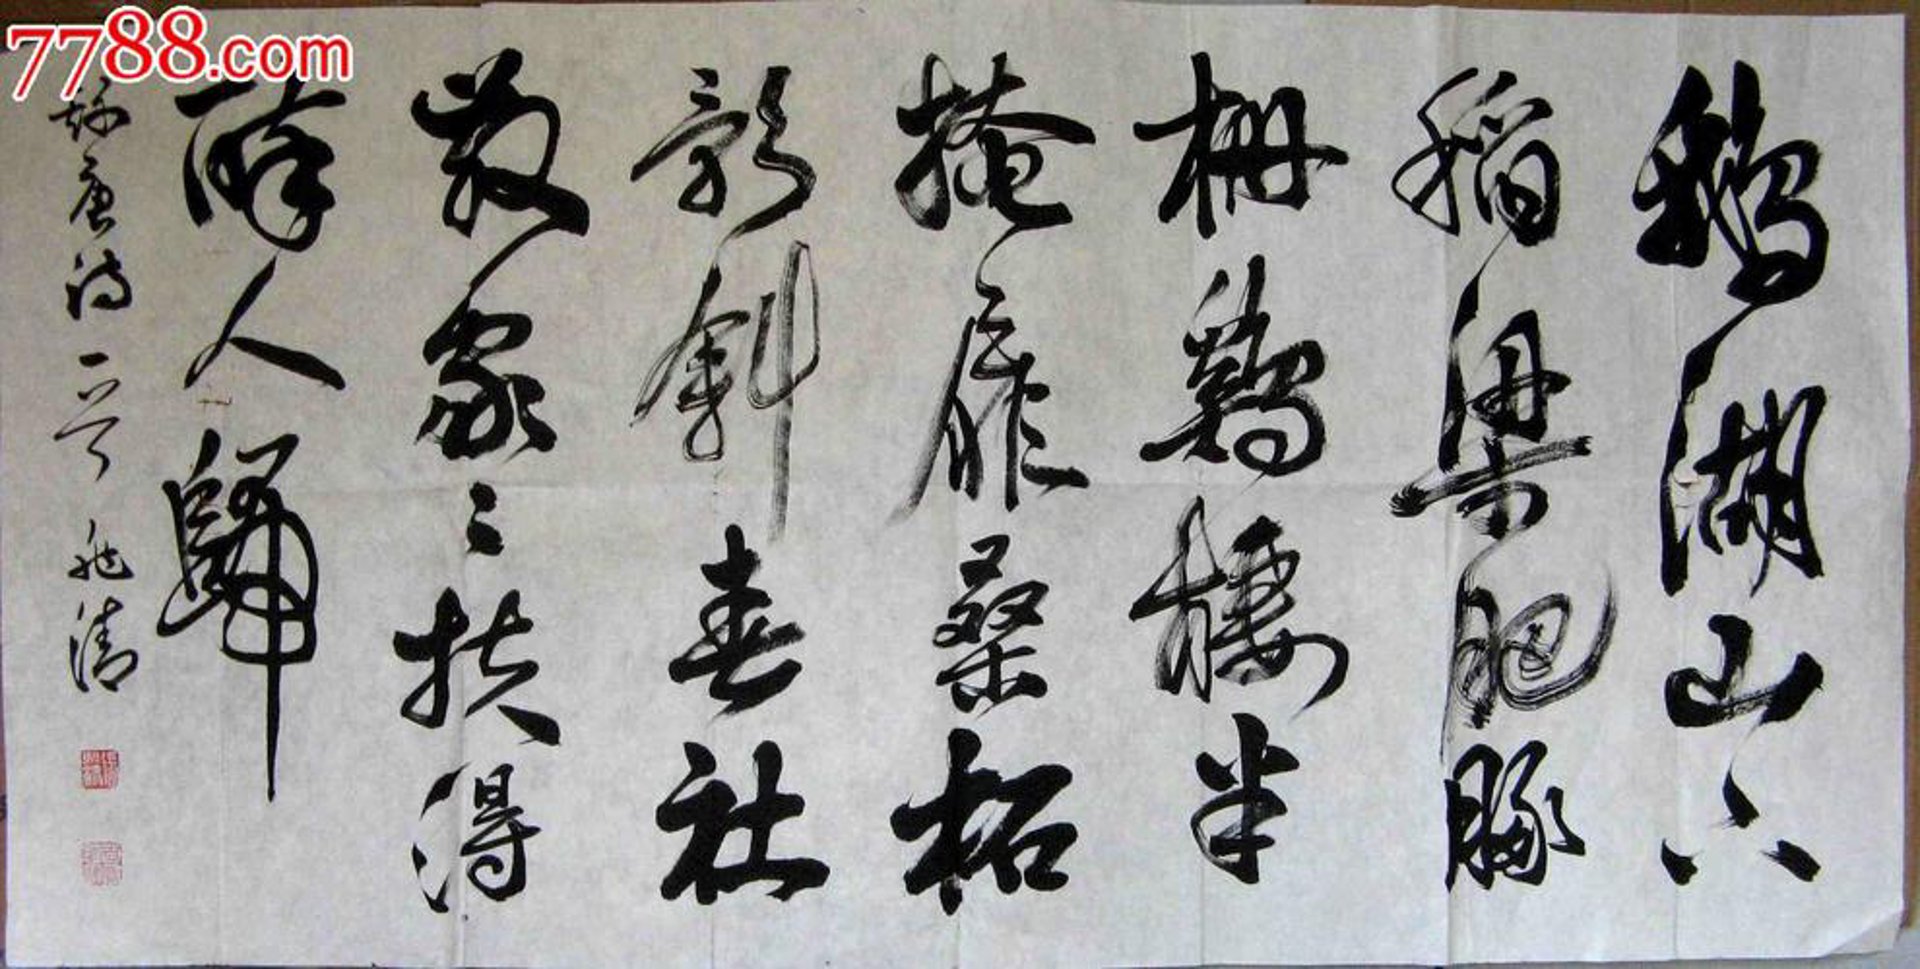 7788.com
鵝湖山下
稻粱肥豚
栅鷄棲半
掩扉桑柘
影斜春社
散家〻扶得
醉人歸
唐诗一首 清